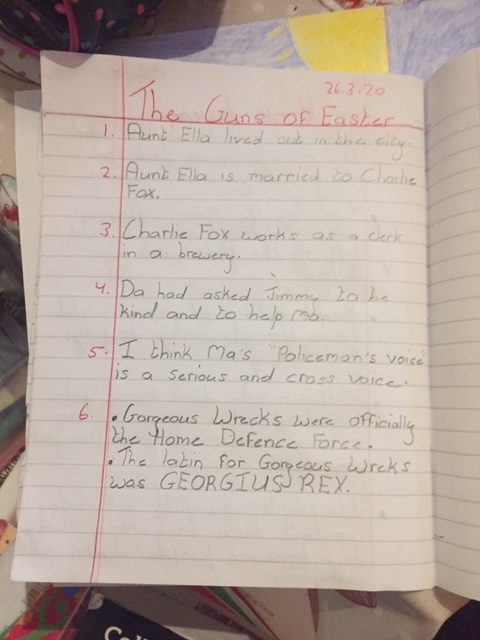 26.3.20
The Guns of Easter
1. Aunt Ella lived out in the city.
2. Aunt Ella is married to Charlie
Fox.
3. Charlie Fox works as a clerk
in a brewery.
4. Da had asked Jimmy to be
kind and to help Ma.
5. I think Ma's "Policeman's voice"
is a serious and cross voice.
6. • Gorgeous Wrecks were officially
the Home Defence Force.
• The latin for Gorgeous Wreks
was GEORGIUS REX.